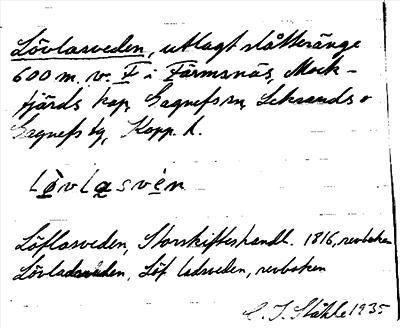 Lövlasveden, utlagt slåtteränge
600 m. v. F i Färmsnäs, Mock-
fjärds kap, Gagnefs sn, Leksands o
Gagnefs tg, Kopp. l.
lövlasvèn
Löflasveden, Storskifteshandl. 1816, revboken
Lövladsveden, Löf ladsveden, revboken
C. I. Ståhle 1935